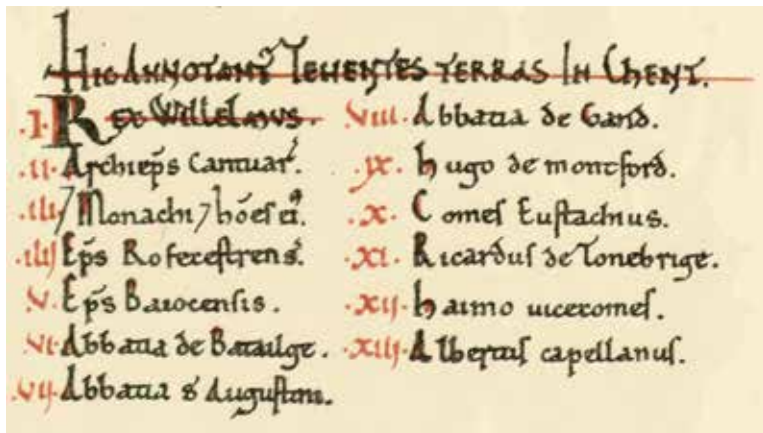 HIC ANNOTANT̃ TENENTES TERRAS IN CHENT.
.I. REX Willelmus.
.II. Archiep̃s Cantuar̃.
.III. ⁊ Monachi ⁊ hõẽs ei᷒.
.IIII. Ep̃s Rofecestrensis.
.V. Ep̃s Baiocensis.
.VI. Abbatia de Batailge.
.VII. Abbatia S̃ Augustini.
.VIII. Abbatia de Gand.
.IX. Hugo de montford.
.X. Comes Eustachius.
.XI. Ricardus de Tonebrige.
.XII. Haimo uicecomes.
.XIII. Albertus capellanus.